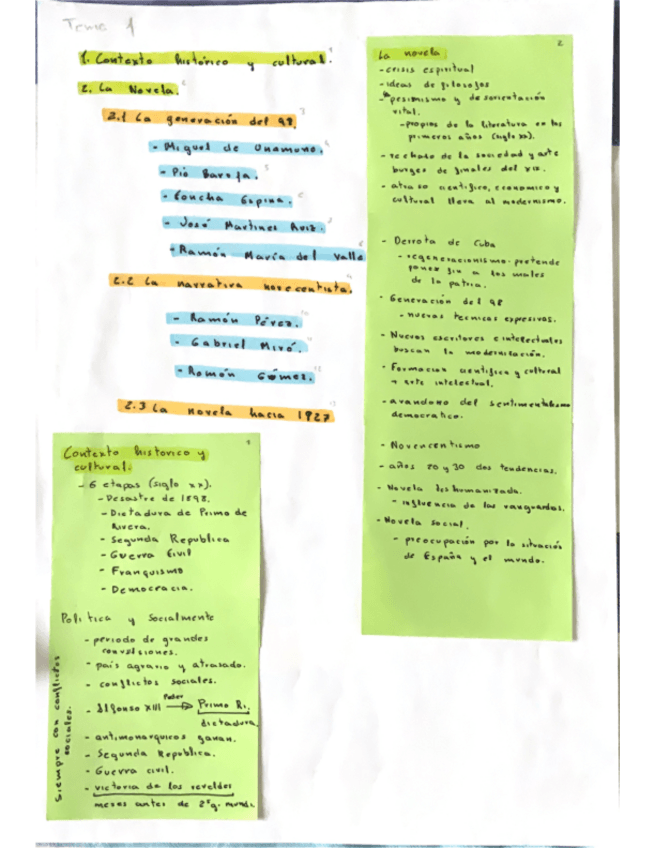 Tema 1
1. Contexto histórico y cultural. 1
2. La Novela. 2
2.1 La generación del 98. 3
- Miguel de Unamuno. 4
- Pío Baroja. 5
- Concha Espina. 6
- José Martínez Ruiz.
- Ramón María del Valle 8
2.2 La narrativa novecentista.
- Ramón Pérez.
- Gabriel Miró.
- Ramón Gómez.
2.3 La novela hacia 1927
1
Contexto historico y
cultural.
- 6 etapas (siglo xx).
- Desastre de 1898.
- Dictadura de Primo de
Rivera.
- Segunda Republica
- Guerra Civil
- Franquismo
- Democracia.
Política y Socialmente
- periodo de grandes
convulsiones.
- país agrario y atrasado.
- conflictos sociales.
- Alfonso XIII Poder → Primo Ri.
dictadura.
- antimonarquicos ganan.
- Segunda Republica.
- Guerra civil.
- victoria de los reveldes
meses antes de 2ªg. mundi.
Siempre con conflictos
sociales.
2
La novela
- crisis espiritual
- ideas de filosofos
- pesimismo y desorientación
vital.
- propios de la literatura en los
primeros años (siglo xx).
- rechazo de la sociedad y arte
burges de finales del xix.
- atraso cientifico, economico y
cultural lleva al modernismo.
- Derrota de Cuba
- regeneracionismo. pretende
poner fin a los males
de la patria.
- Generación del 98
- nuevas tecnicas expresivas.
- Nuevos escritores e intelectuales
buscan la modernización.
- Formacion cientifica y cultural
→ arte intelectual.
- avandono del sentimentalismo
democratico.
- Novencentismo
- años 20 y 30 dos tendencias.
- Novela deshumanizada.
- influencia de las vanguardas.
- Novela social.
- preocupación por la situación
de España y el mundo.